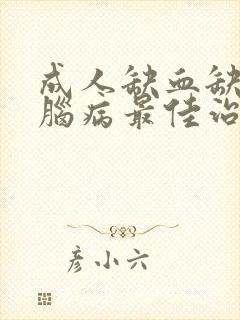 成人缺血缺
腦病最佳治
彦小六